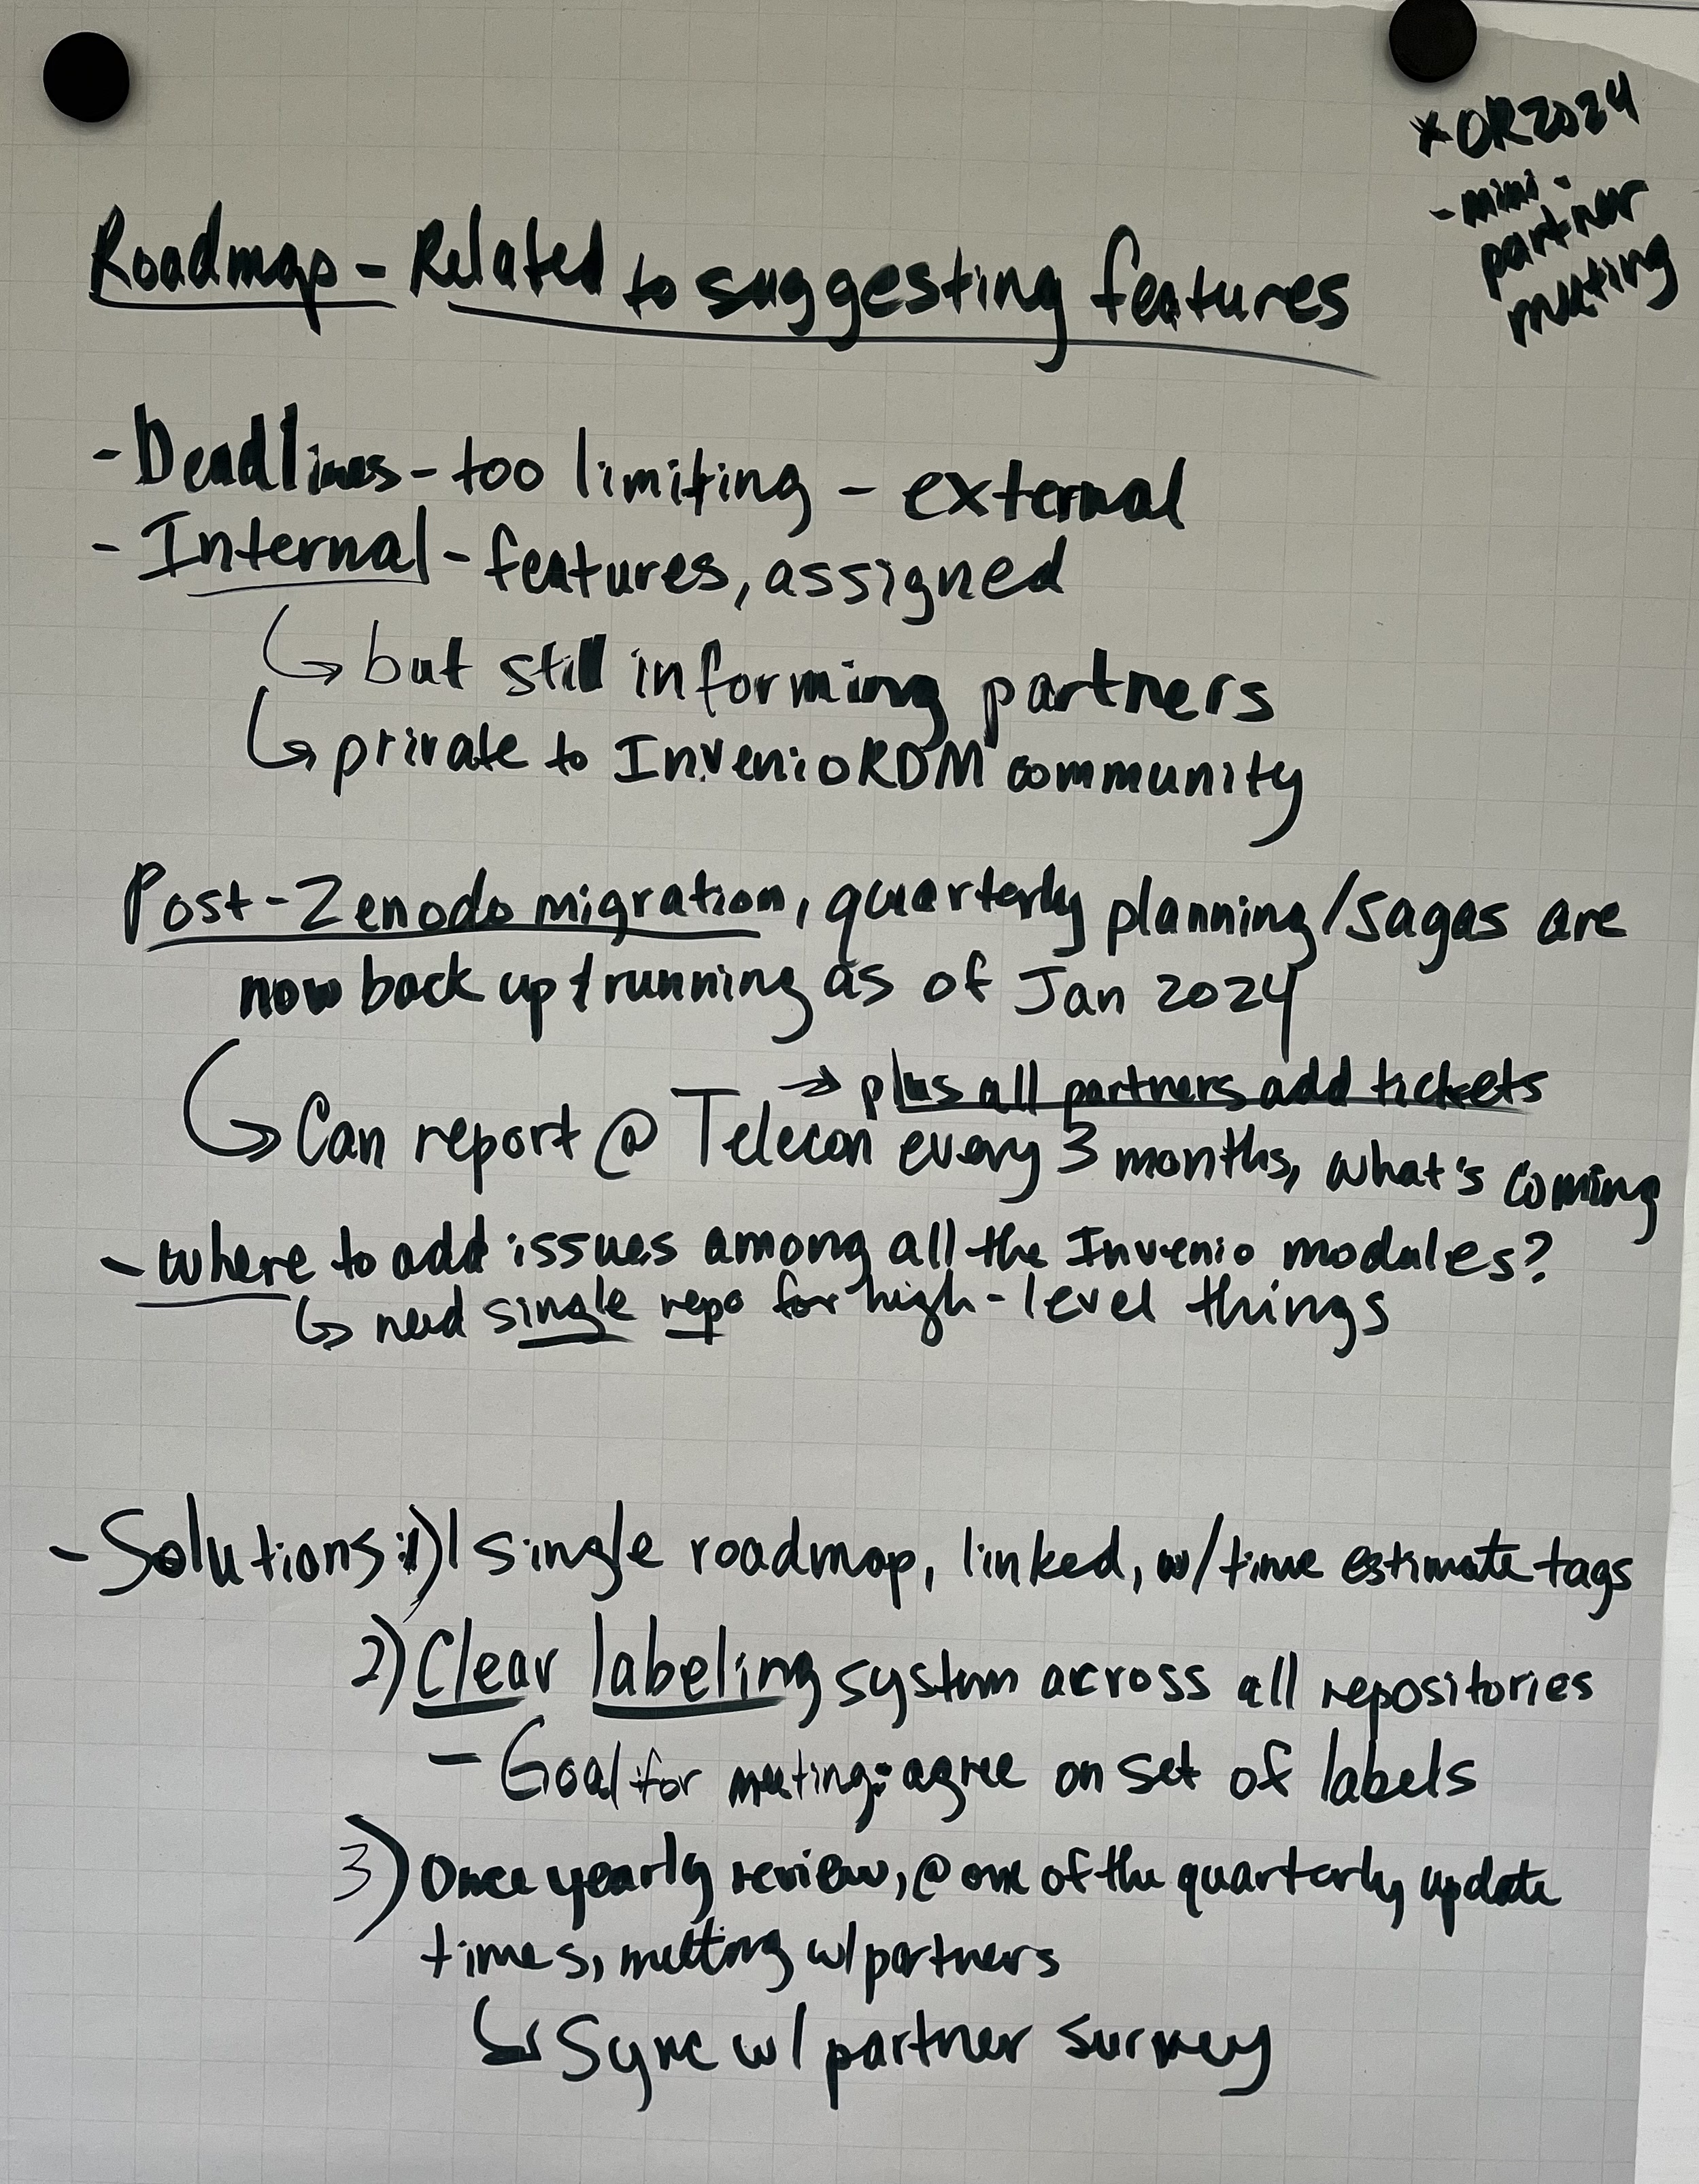 * OR2024
- mini -
partner
meeting
Roadmap - Related to suggesting features
- Deadlines - too limiting - external
- Internal - features, assigned
↳ but still informing partners
↳ private to InvenioRDM community
Post-Zenodo migration, quarterly planning/sagas are
now back up + running as of Jan 2024
→ plus all partners add tickets
↳ Can report @ Telecon every 3 months, what's coming
- Where to add issues among all the Invenio modules?
↳ need single repo for high-level things
- Solutions: 1) 1 single roadmap, linked, w/ time estimate tags
2) Clear labeling system across all repositories
- Goal for meeting: agree on set of labels
3) Once yearly review, @ one of the quarterly update
times, meeting w/ partners
↳ Sync w/ partner survey